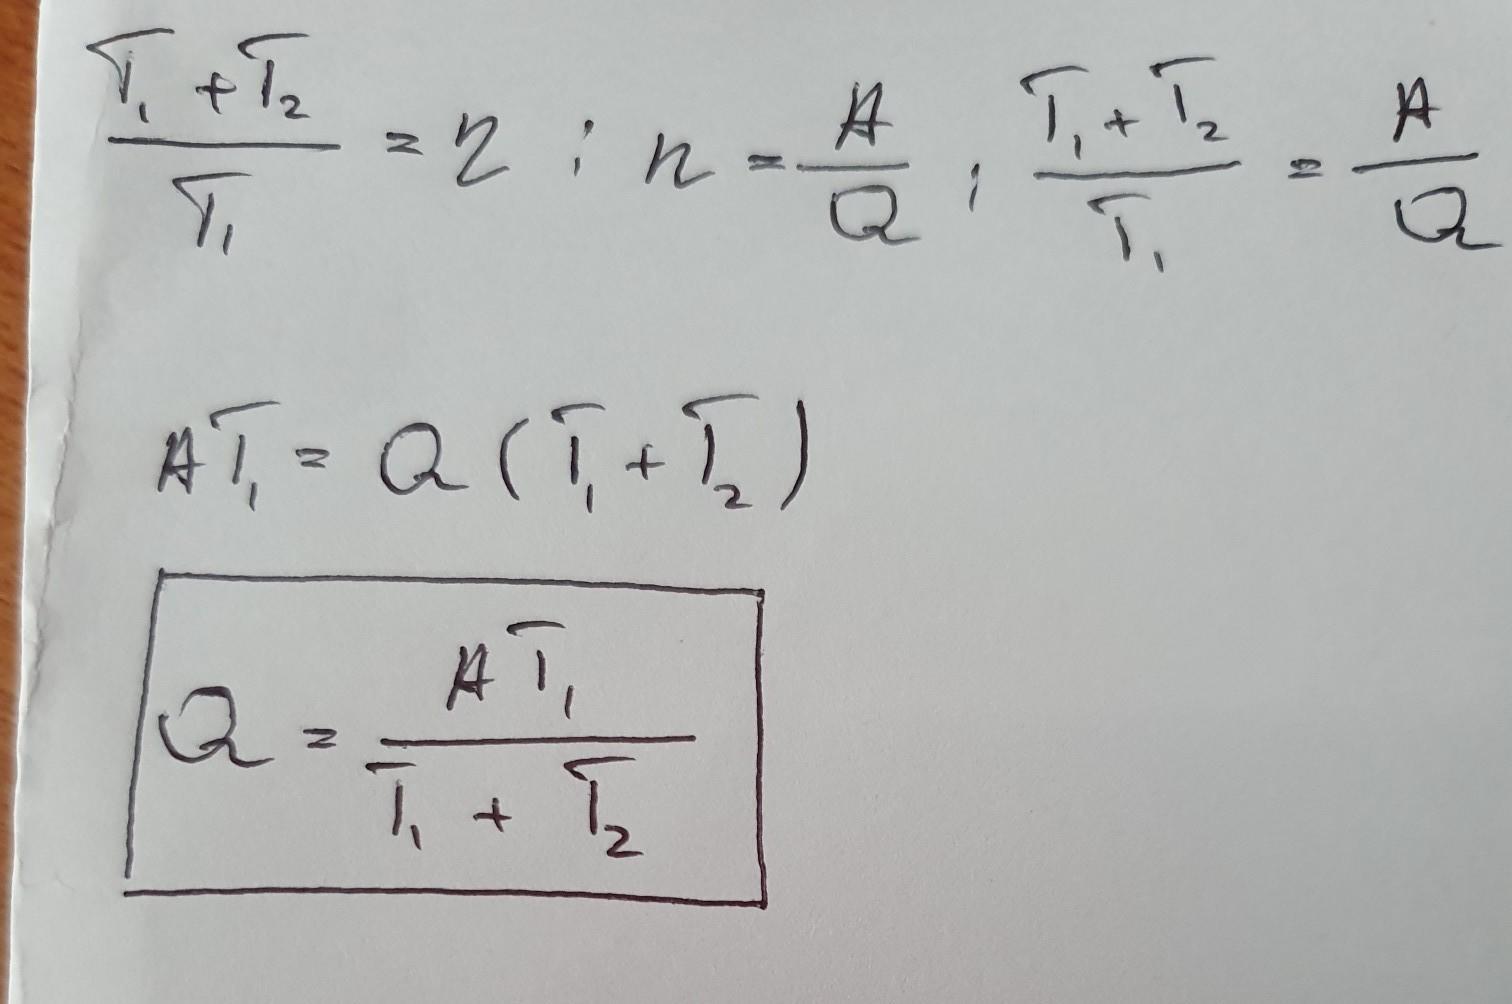 (T₁ + T₂)/T₁ = η ; n = A/Q ; (T₁ + T₂)/T₁ = A/Q
AT₁ = Q (T₁ + T₂)
Q = AT₁/(T₁ + T₂)